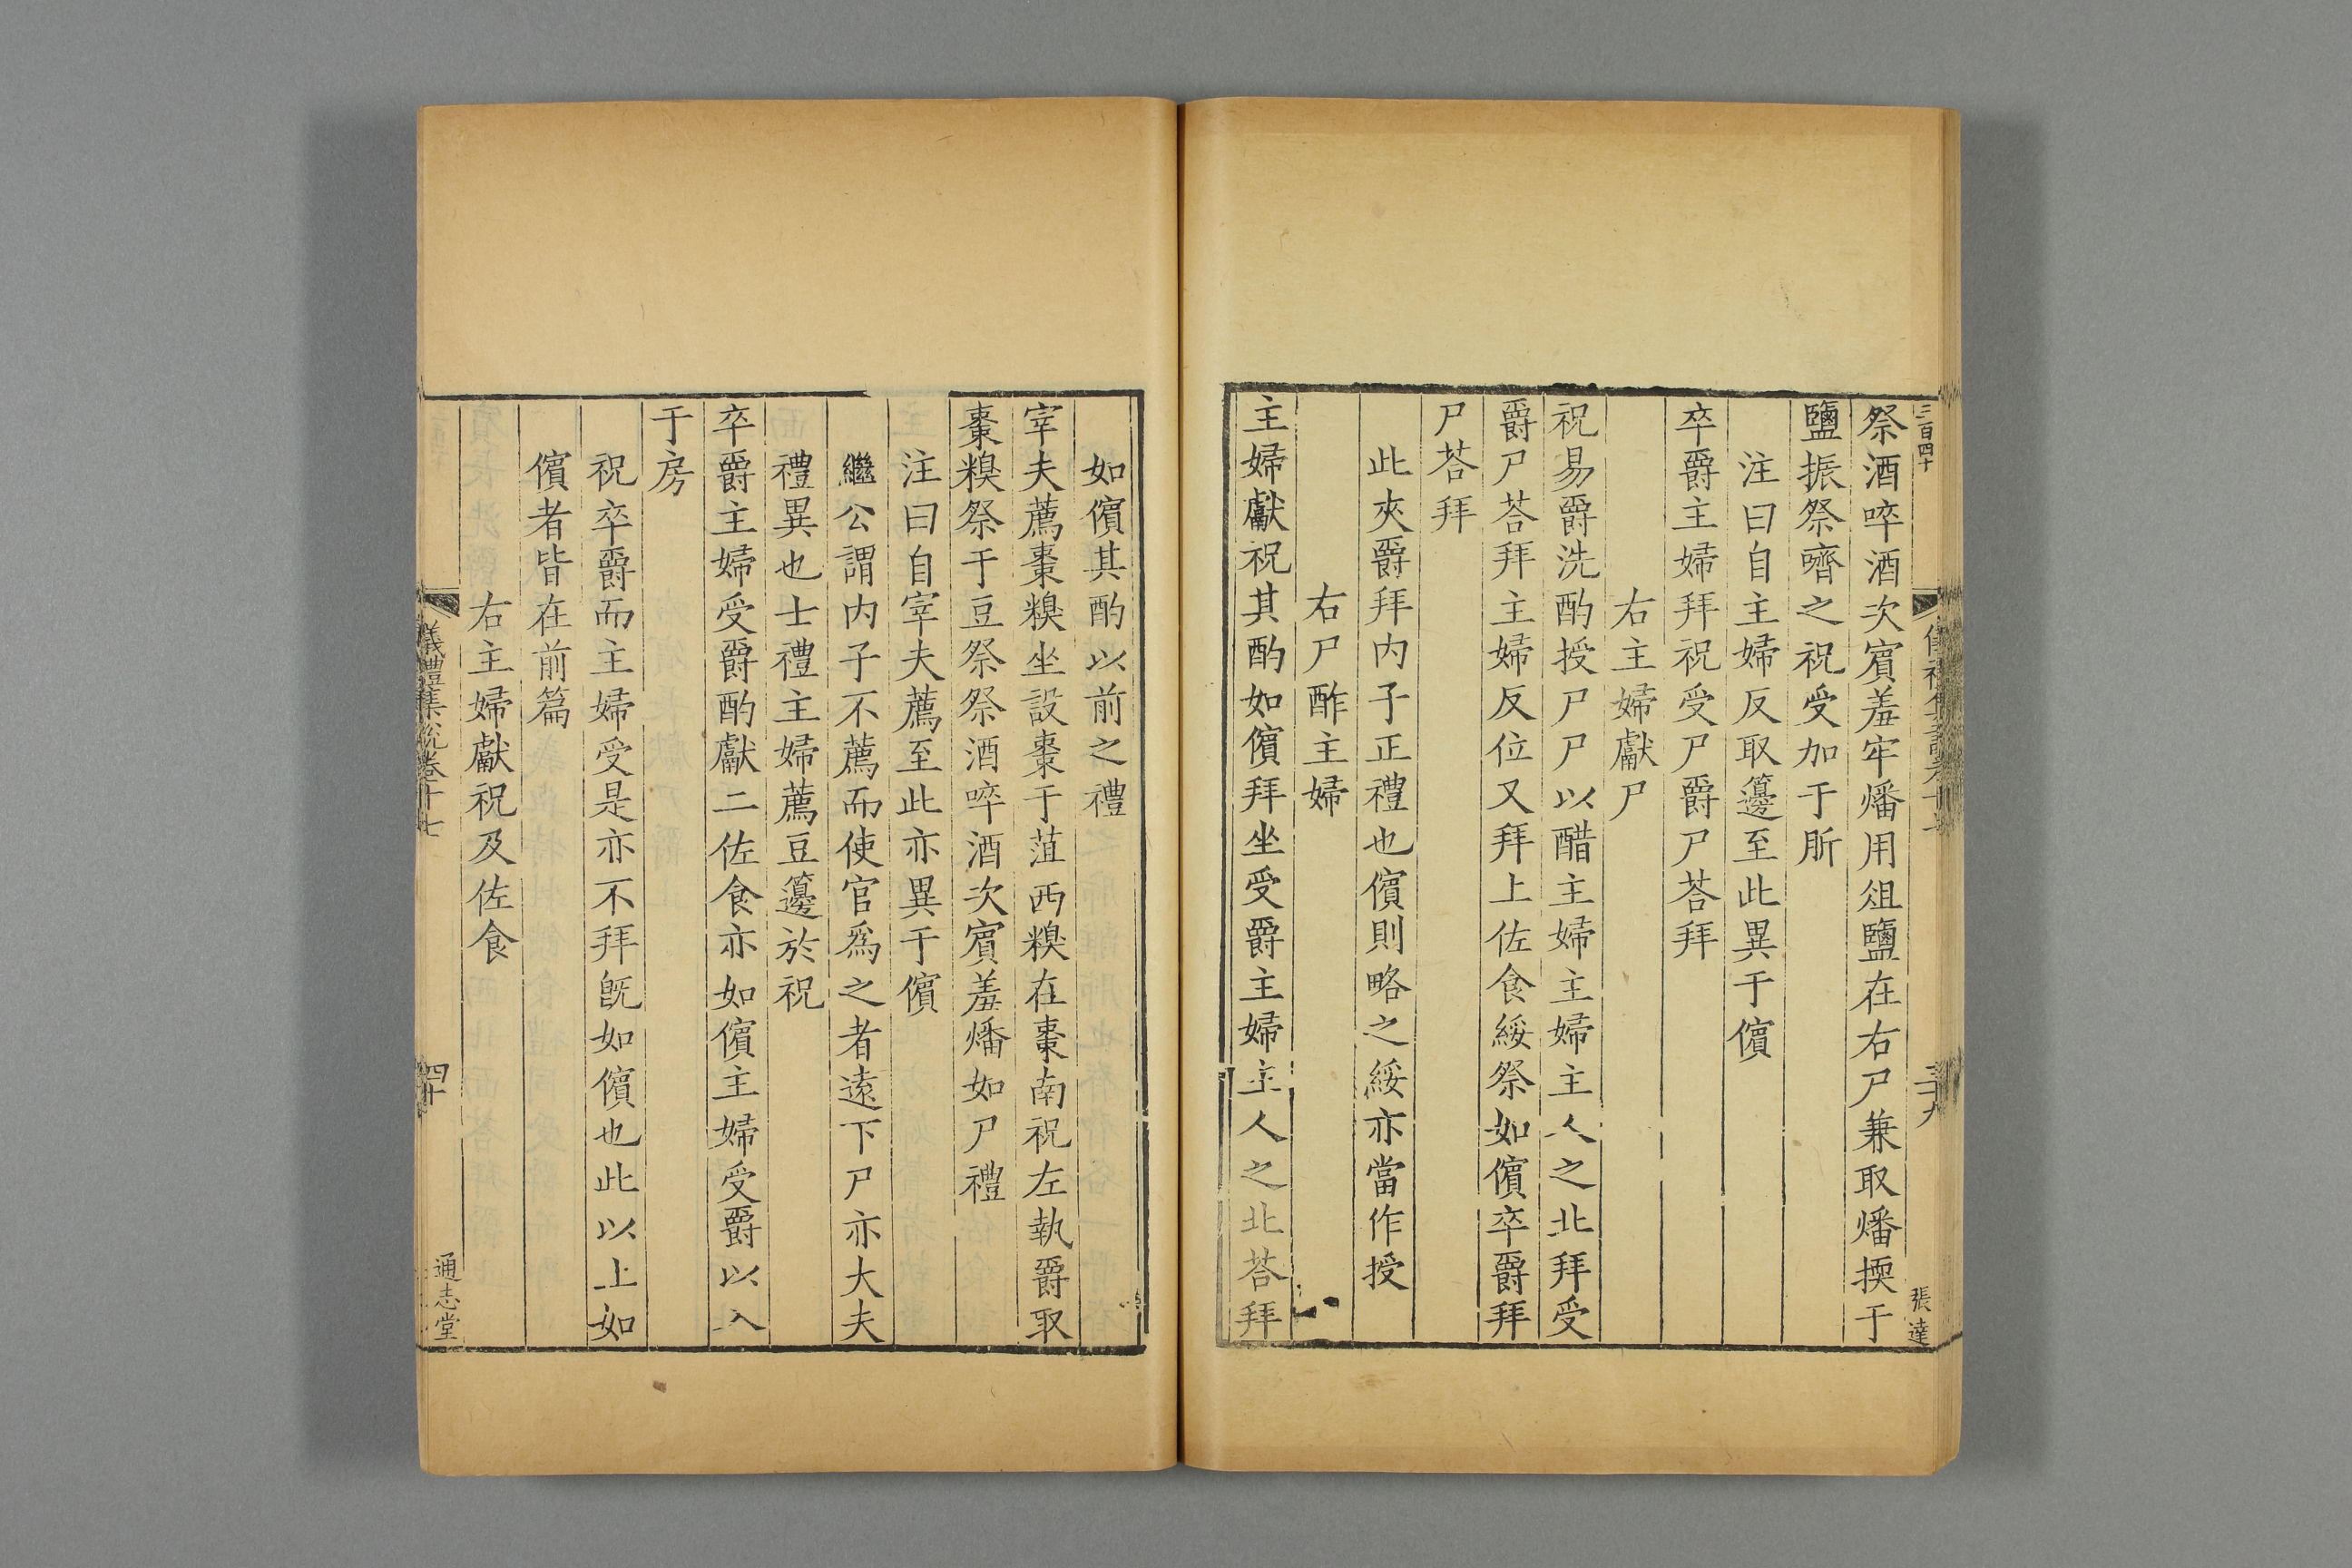 三百四十
祭酒啐酒次賔羞牢燔用俎鹽在右尸兼取燔㨎于
鹽振祭嚌之祝受加于肵
注曰自主婦反取籩至此異于儐
卒爵主婦拜祝受尸爵尸荅拜
右主婦獻尸
祝易爵洗酌授尸尸以醋主婦主婦主人之北拜受
爵尸荅拜主婦反位又拜上佐食綏祭如儐卒爵拜
尸荅拜
此夾爵拜内子正禮也儐則略之綏亦當作授
右尸酢主婦
主婦獻祝其酌如儐拜坐受爵主婦主人之北荅拜
三十九
張達
如儐其酌以前之禮
宰夫薦棗糗坐設棗于菹西糗在棗南祝左執爵取
棗糗祭于豆祭祭酒啐酒次賔羞燔如尸禮
注曰自宰夫薦至此亦異于儐
繼公謂内子不薦而使官爲之者遠下尸亦大夫
禮異也士禮主婦薦豆籩於祝
卒爵主婦受爵酌獻二佐食亦如儐主婦受爵以入
于房
祝卒爵而主婦受是亦不拜旣如儐也此以上如
儐者皆在前篇
右主婦獻祝及佐食
儀禮集說卷十七
四十
通志堂